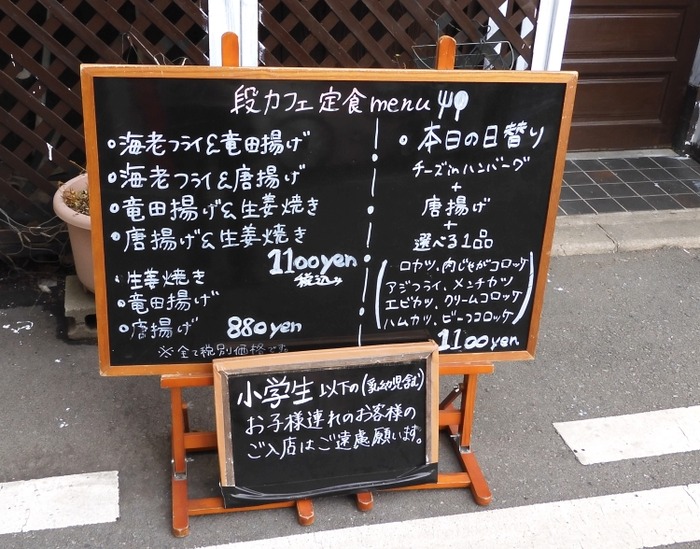 段カフェ定食menu
・海老フライ&竜田揚げ
・海老フライ&唐揚げ
・竜田揚げ&生姜焼き
・唐揚げ&生姜焼き
1100yen
税込み
・生姜焼き
・竜田揚げ
・唐揚げ 880yen
※全て税別価格です
・本日の日替り
チーズinハンバーグ
+
唐揚げ
+
選べる1品
(ロカツ、肉じゃがコロッケ
アジフライ、メンチカツ
エビカツ、クリームコロッケ
ハムカツ、ビーフコロッケ)
1100yen
小学生以下の(乳幼児含む)
お子様連れのお客様の
ご入店はご遠慮願います。